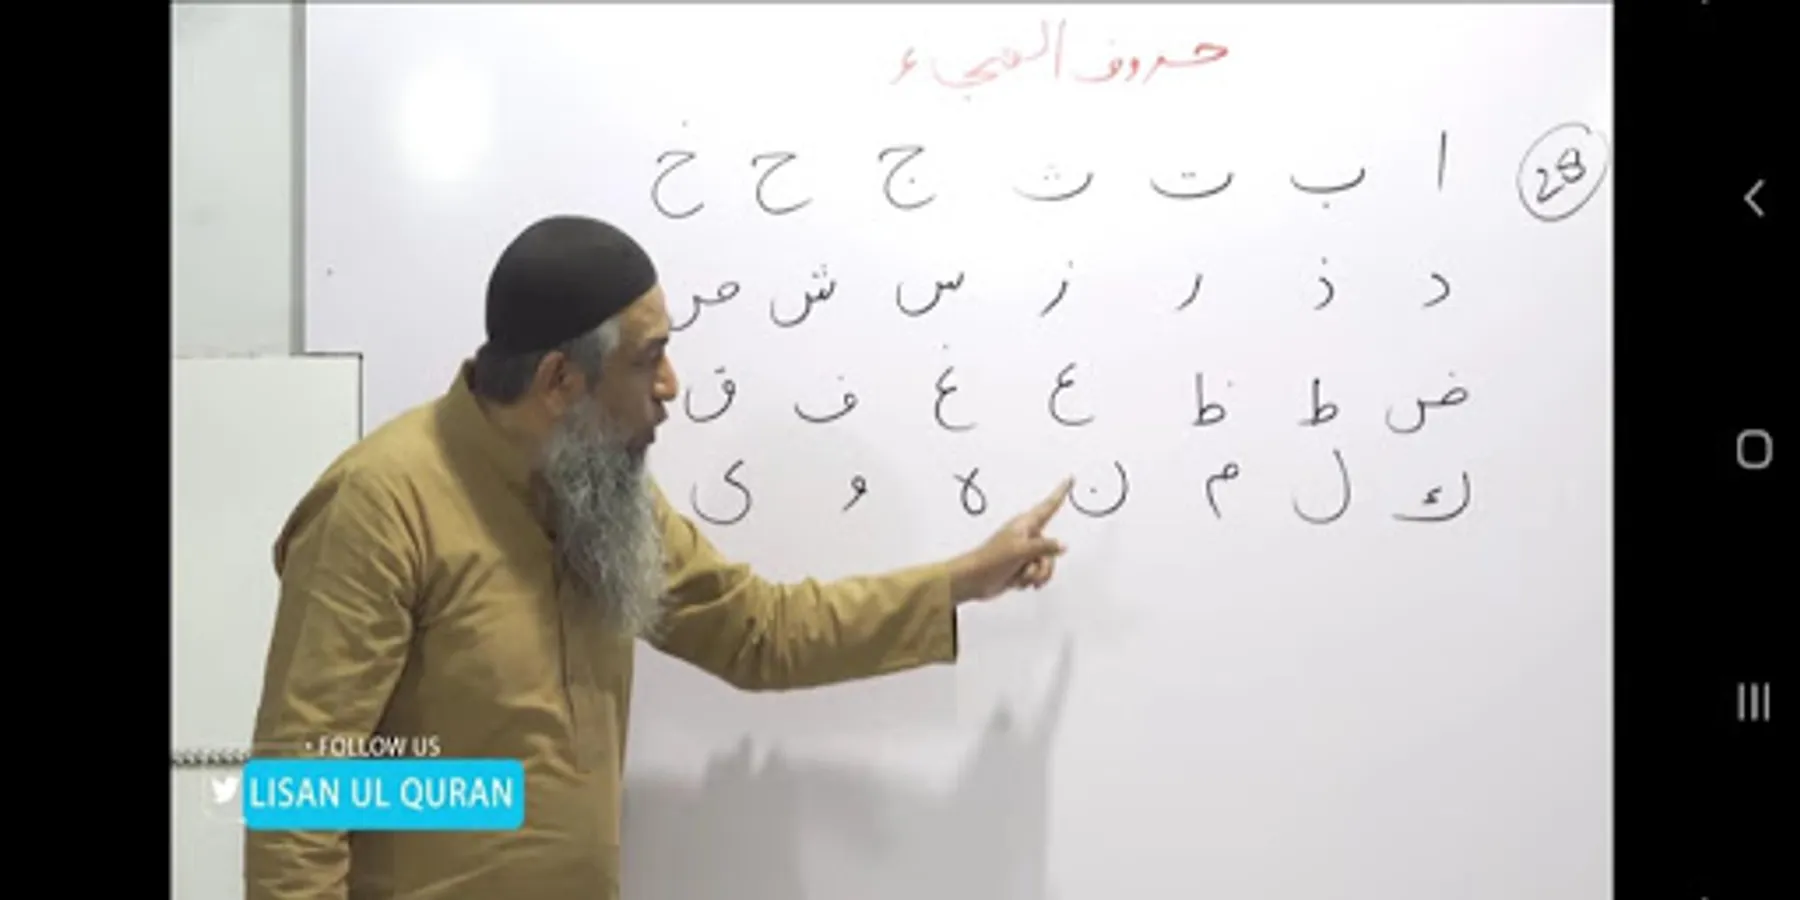 حروف الهجاء
28
ا ب ت ث ج ح خ
د ذ ر ز س ش ص
ض ط ظ ع غ ف ق
ك ل م ن ه و ى
• FOLLOW US
LISAN UL QURAN